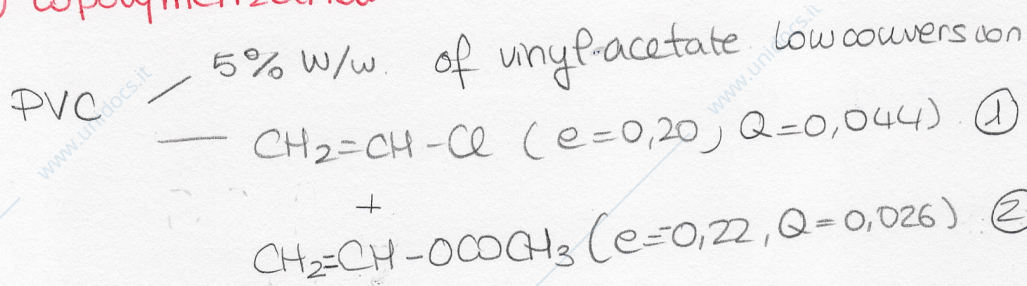 copolymerization
5% w/w. of vinyl acetate low conversion
PVC
CH₂=CH-Cl (e=0,20, Q=0,044) ①
+
CH₂=CH-OCOCH₃ (e=-0,22, Q=0,026) ②
www.unidocs.it
www.unidocs.it